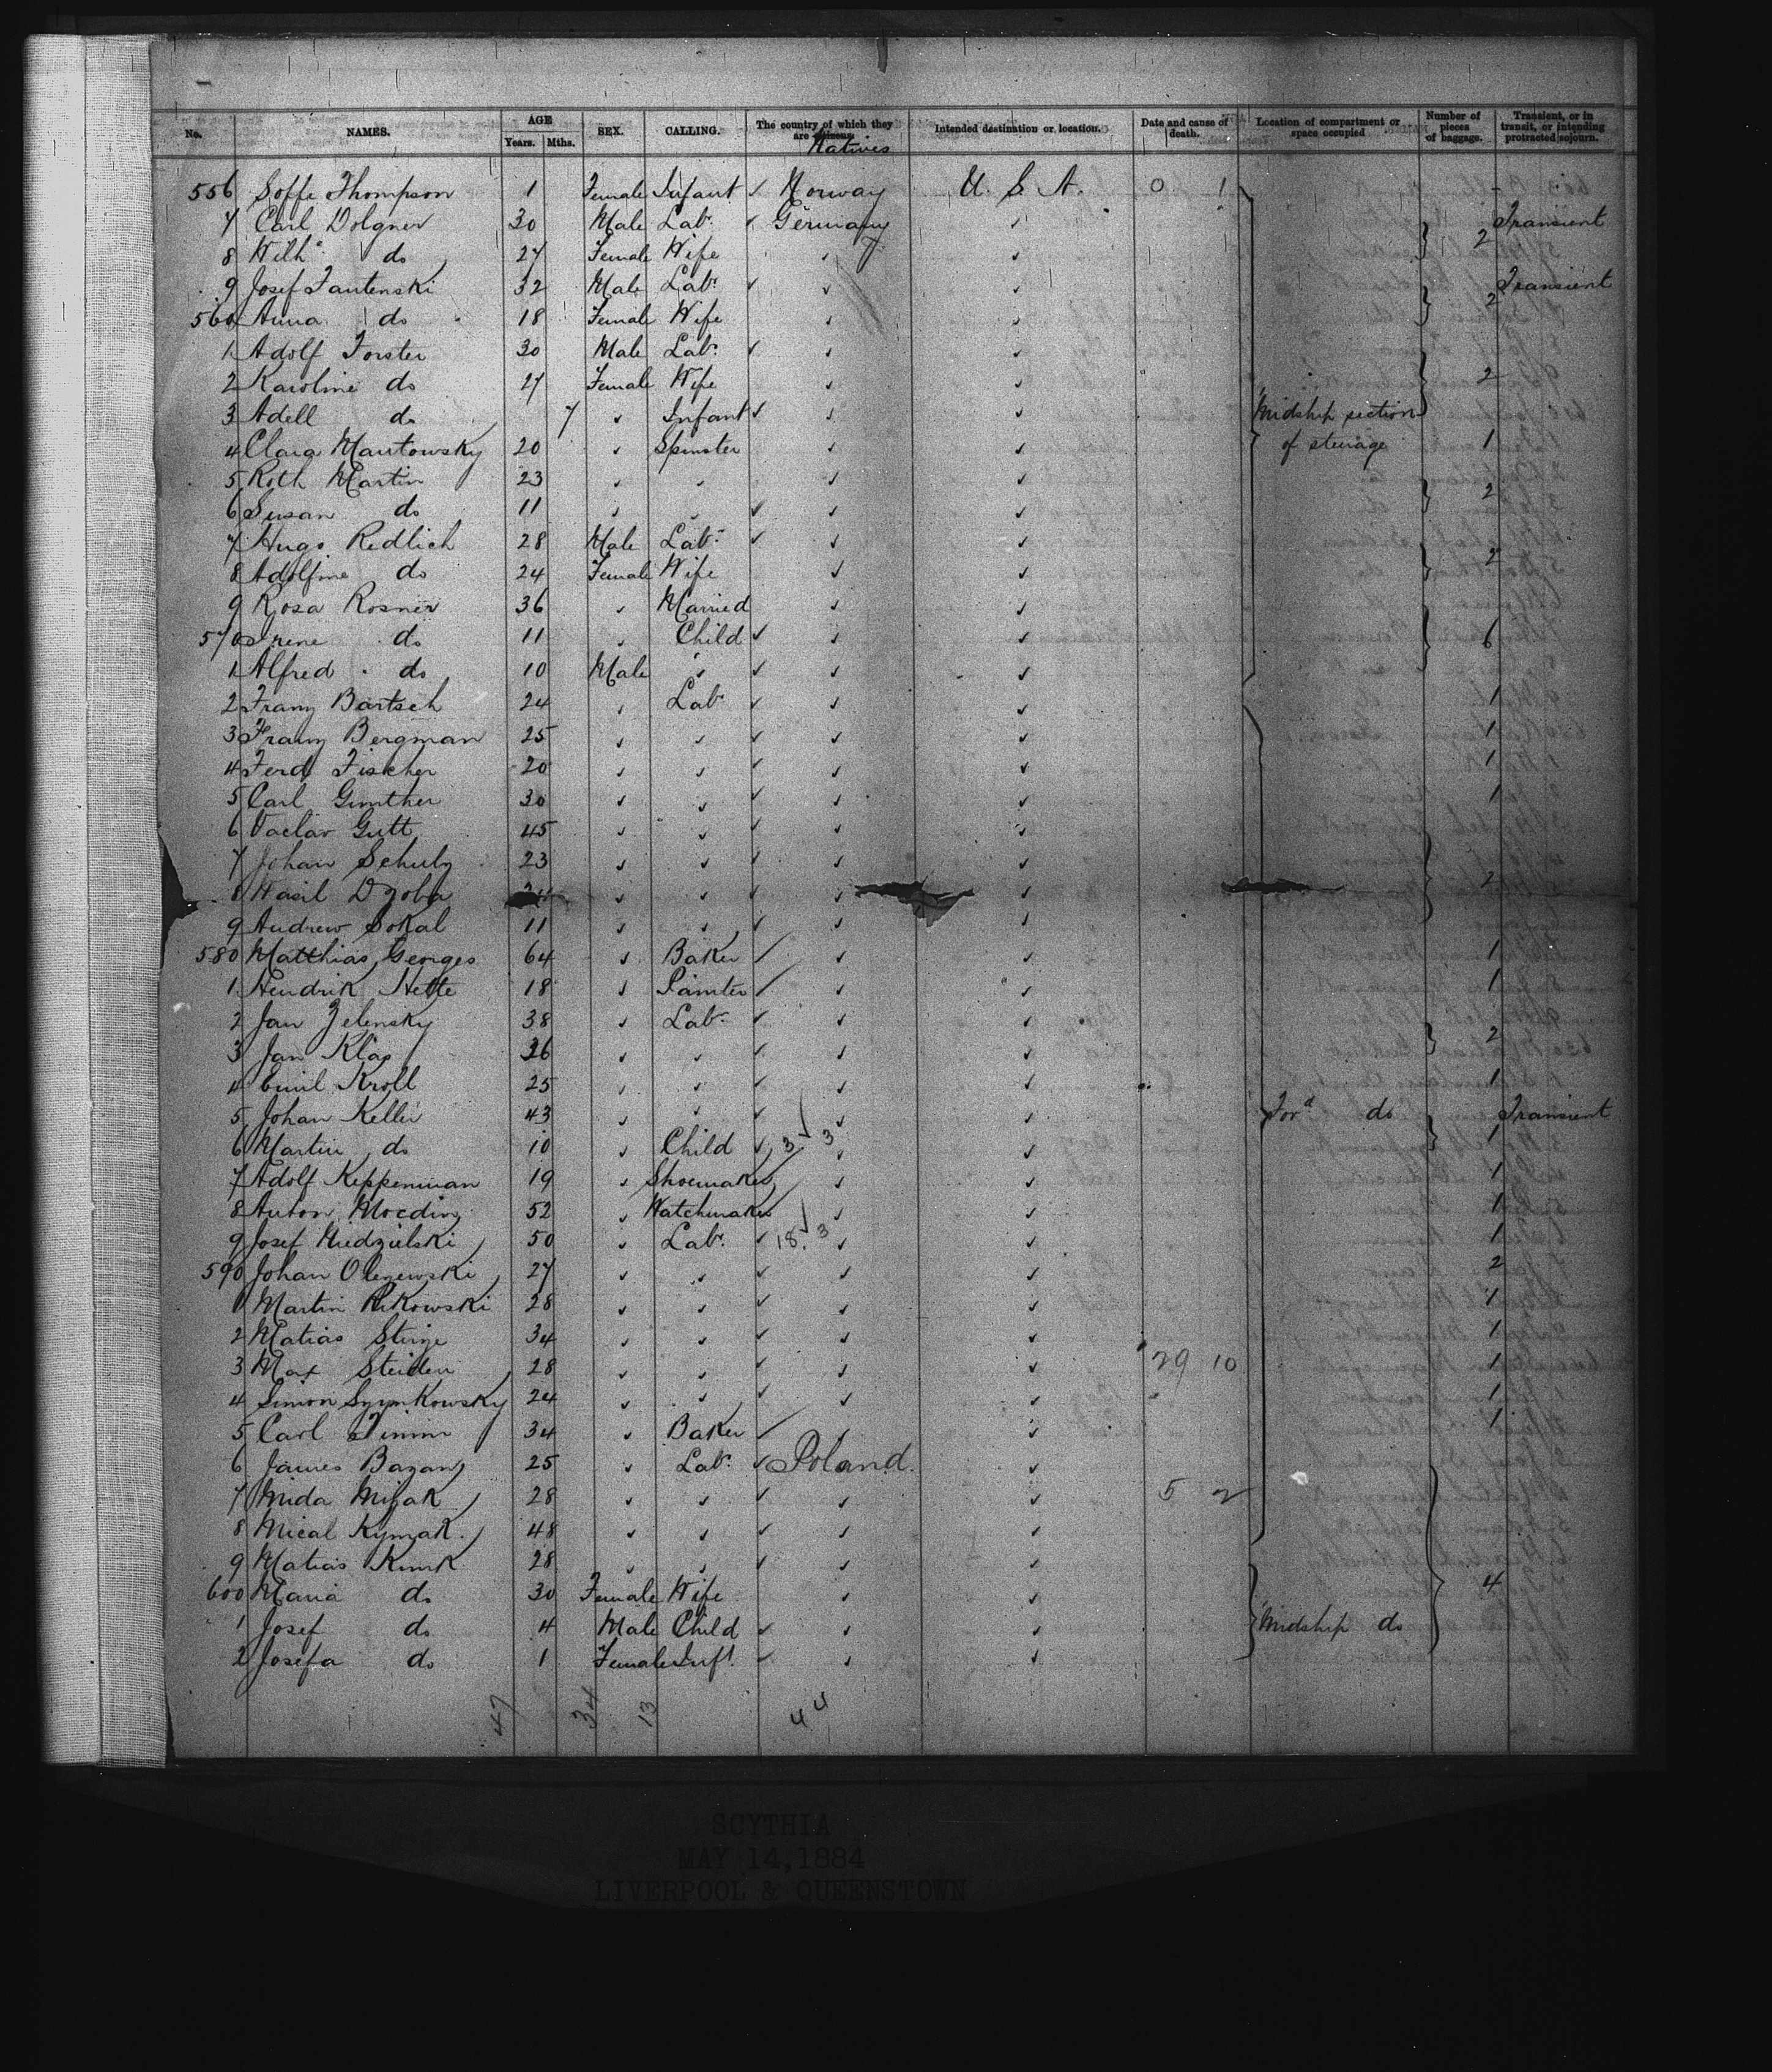 No. NAMES. AGE Years. Mths. SEX. CALLING. The country of which they are citizens Natives Intended destination or location. Date and cause of death. Location of compartment or space occupied Number of pieces of baggage. Transient, or in transit, or intending protracted sojourn.
556 Soffe Thompson 1 Female Infant ✓ Norway U. S. A. 0 1
7 Carl Dolgner 30 Male Lab. ✓ Germany ✓ Transient
8 Wilhe do 27 Female Wife ✓ ✓ 2
9 Josef 32 Male Labr ✓ ✓ ✓ Transient
560 Anna do 18 Female Wife ✓ ✓ 2
1 Adolf Forster 30 Male Labr ✓ ✓ ✓
2 Karoline do 27 Female Wife ✓ ✓ 2
3 Adell do 7 ✓ Infant ✓ ✓ ✓ Midship section
4 Clara Mantowsky 20 ✓ Spinster ✓ ✓ of steerage 1
5 Roth Martin 23 ✓ ✓ ✓ ✓
6 Susan do 11 ✓ ✓ ✓ ✓ ✓ 2
7 Hugo Redlich 28 Male Labr ✓ ✓ ✓
8 Adolfine do 24 Female Wife ✓ ✓ 2
9 Rosa Rosner 36 ✓ Married ✓ ✓
570 Irene do 11 ✓ Child ✓ ✓ ✓ 6
1 Alfred do 10 Male ✓ ✓ ✓ ✓
2 Franz Bartsch 24 ✓ Labr ✓ ✓ ✓ 1
3 Franz Bergman 25 ✓ ✓ ✓ ✓ ✓ 1
4 Ferd Fischer 20 ✓ ✓ ✓ ✓ ✓ 1
5 Carl Gunther 30 ✓ ✓ ✓ ✓ ✓ 1
6 Vaclav Gutt 45 ✓ ✓ ✓ ✓ ✓
7 Johan Schulz 23 ✓ ✓ ✓ ✓ ✓
8 Wasil Dzoba ✓ ✓ ✓ ✓ ✓ 2
9 Andrew Sokal 11 ✓ ✓ ✓ ✓ ✓
580 Matthias Georges 64 ✓ Baker ✓ ✓ ✓ 1
1 Hendrik Hette 18 ✓ Painter ✓ ✓ ✓ 1
2 Jan Zelensky 38 ✓ Labr ✓ ✓ ✓
3 Jan Klap 36 ✓ ✓ ✓ ✓ ✓ 2
4 Emil Kroll 25 ✓ ✓ ✓ ✓ ✓ 1
5 Johan Keller 43 ✓ ✓ ✓ ✓ ✓ Ford do Transient
6 Martin do 10 ✓ Child ✓ 3 3 ✓ ✓ 1
7 Adolf Kippenman 19 ✓ Shoemaker ✓ ✓ 1
8 Anton Moeding 52 ✓ Watchmaker ✓ ✓ 1
9 Josef Niedzielski 50 ✓ Labr ✓ 18 3 ✓ ✓ 1
590 Johan Olszewski 27 ✓ ✓ ✓ ✓ ✓ 2
1 Martin 28 ✓ ✓ ✓ ✓ ✓ 1
2 Matias 34 ✓ ✓ ✓ ✓ ✓ 1
3 Max Steiden 28 ✓ ✓ ✓ ✓ ✓ 29 10 1
4 Simon 24 ✓ ✓ ✓ ✓ ✓ 1
5 Carl Timm 34 ✓ Baker ✓ ✓ ✓ 1
6 James Bazany 25 ✓ Labr ✓ Poland ✓
7 Mida Mizak 28 ✓ ✓ ✓ ✓ ✓ 5 2
8 Mical Kymzak 48 ✓ ✓ ✓ ✓ ✓
9 Matias 28 ✓ ✓ ✓ ✓ ✓
600 Maria do 30 Female Wife ✓ ✓ 4
1 Josef do 4 Male Child ✓ ✓ ✓ Midship do
2 Josefa do 1 Female Inft ✓ ✓ ✓
47 34 13 44
SCYTHIA
MAY 14,1884
LIVERPOOL & QUEENSTOWN